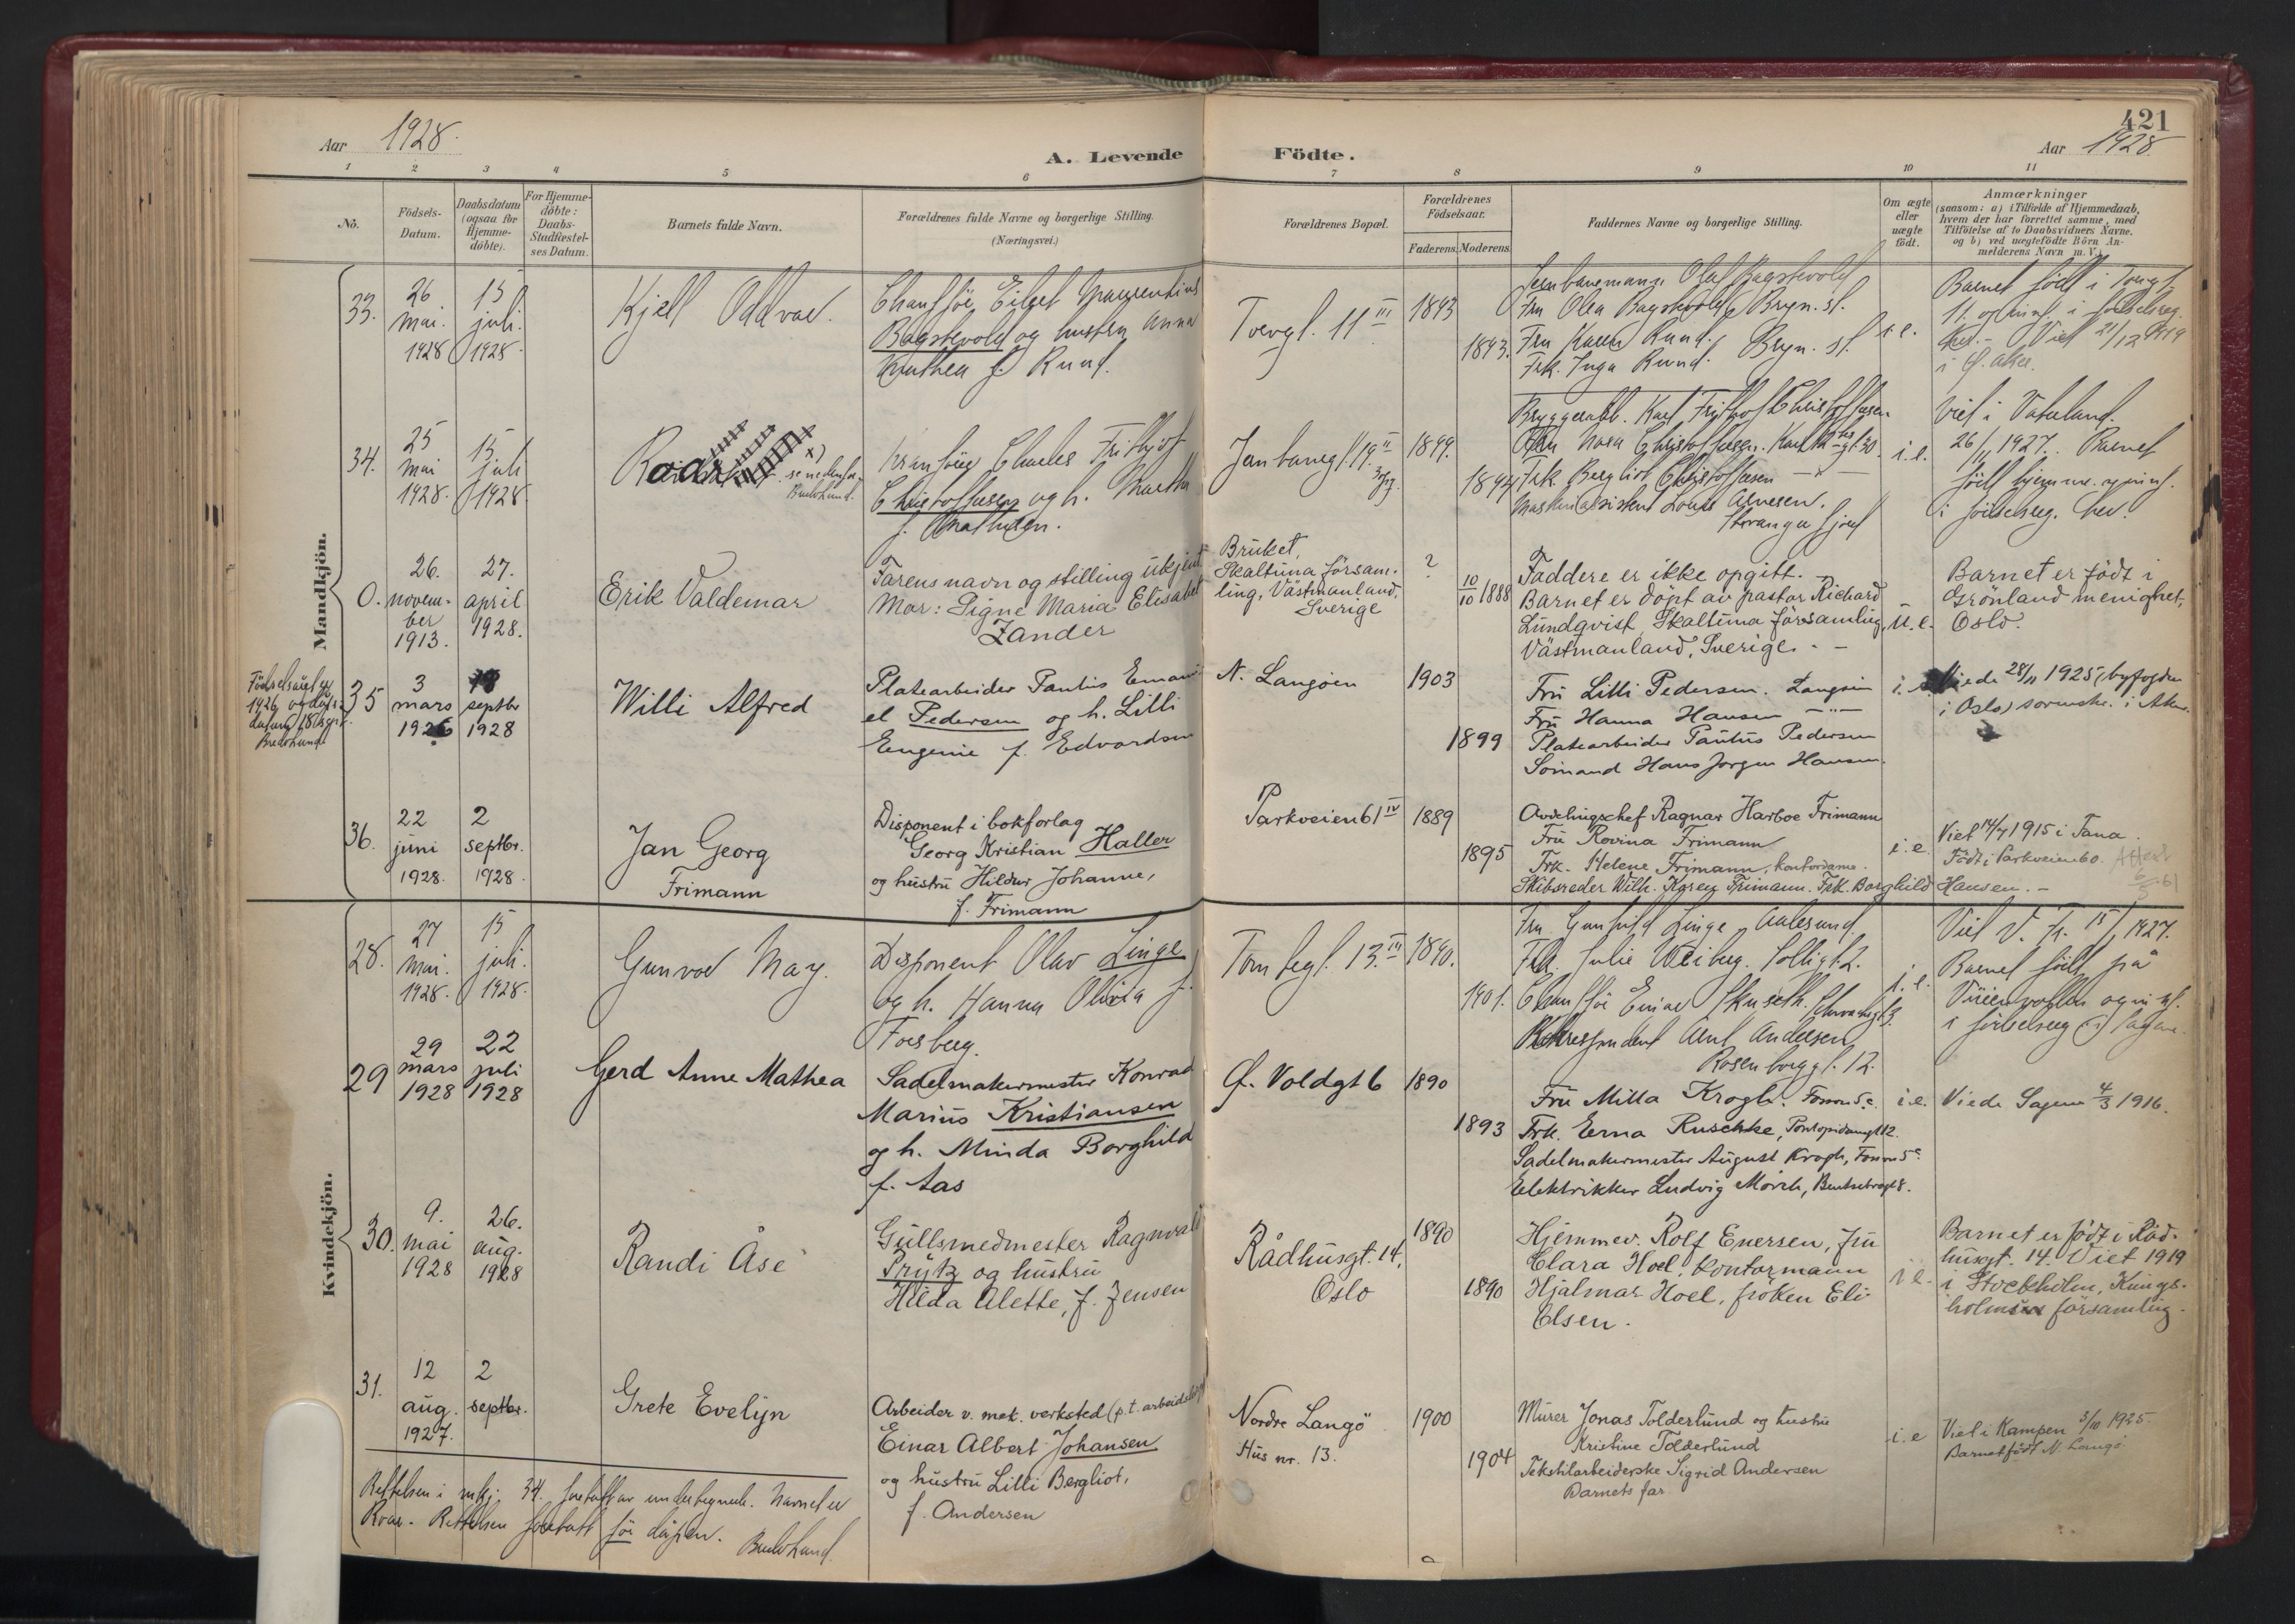 421
Aar 1928.
A. Levende Födte.
Aar 1928.
1 2 3 4 5 6 7 8 9 10 11
No.
Födsels-
Datum.
Daabsdatum
(ogsaa for
Hjemme-
döbte).
For Hjemme-
döbte:
Daabs-
Stadfæstel-
ses Datum.
Barnets fulde Navn.
Forældrenes fulde Navne og borgerlige Stilling.
(Næringsvei.)
Forældrenes Bopæl.
Forældrenes
Födselsaar.
Faderens. Moderens.
Faddernes Navne og borgerlige Stilling.
Om ægte
eller
uægte
födt.
Anmærkninger
(saasom: a) i Tilfælde af Hjemmedaab,
hvem der har forrettet samme, med
Tilföielse af to Daabsvidners Navne.
og b) ved uægtefödte Börn An-
melderens Navn m. V.)
Mandkjön.
33.
26
mai.
1928
15
juli.
1928.
Kjell Oddvar.
Bagstevold og hustru Anna
f. Rund.
11 III
1893
1893.
Olaf Bagstevold
Fru Olea Bagstevold Bryn. st.
Fru Karen Rund. Bryn. st.
Frk. Inga Rund.
i.e.
Barnet födt i
Viet 21/12 1919
i Ø. Aker.
34.
25
mai
1928.
15
juli
1928.
Roar
x)
Charles Frithjof
Christoffersen og h. Martha
f. Mathisen.
Jernbanegt. 19 II
1899.
1894
Fru Nora Christoffersen.
Frk. Bergliot Christoffersen
Maskinassistent Louis Arnesen.
i.e.
Viet i Vaterland.
26/11 1927. Barnet
født hjemme.
0.
26.
novem-
ber
1913.
27.
april
1928.
Erik Valdemar
Farens navn og stilling ukjent
Mor: Signe Maria Elisabet
Zander
Bruket,
Skaltuna försam-
ling, Västmanland,
Sverige
?
10/10 1888
Faddere er ikke opgitt. -
Barnet er döpt av pastor Richard
Lundqvist, Skaltuna församling,
Västmanland, Sverige. -
u.e.
Barnet er födt i
Grönland menighet,
Oslo.
Födselsåret er
1926 og dåps-
datum 18 sept.
35
3
mars
1926
18
septbr
1928
Willi Alfred
Platearbeider Paulus Emanu-
el Pedersen og h. Lilli
Eugenie f. Edvardsen
N. Langöen
1903
1899
Fru Lilli Pedersen. Langöen
Fru Hanna Hansen - " -
Platearbeider Paulus Pedersen
Sömand Hans Jorgen Hansen.
i.e.
Viede 28/11 1925 (byfogden
i Oslo)
36.
22
juni
1928.
2
septbr.
1928.
Jan Georg
Frimann
Disponent i bokforlag
Georg Kristian Haller
og hustru Hildur Johanne,
f. Frimann
Parkveien 61 IV
1889
1895
Avdelingschef Ragnar Harboe Frimann
Fru Rovina Frimann
Frk. Helene Frimann, kontordame.
Skibsreder Wilh. Kgrey Frimann. Frk. Borghild Hansen. -
i.e.
Viet 14/7 1915 i Tana.
Födt i Parkveien 60.
Attest
Kvindekjön.
28.
27
mai.
1928.
15
juli.
1928.
Gunvor May.
Disponent Olav Linge
og h. Hanna Olivia f.
Forsberg.
Tomtegt. 13. III
1890.
1901.
Fru Gunhild Linge, Aalesund.
Frk. Julie Wiiberg.
Korrespondent Arnt Andersen
Rosenborggt. 12.
i.e.
Barnet födt på
29
29
mars
1928
22
juli
1928
Gerd Anne Mathea
Sadelmakermester Konrad
Marius Kristiansen
og h. Minda Borghild
f. Aas
Ø. Voldgt 6
1890
1893
Fru Milla Krogh.
Frk. Erna Ruschke, Pontopidansgt 12.
Sadelmakermester August Krogh,
Elektrikker Ludvig Mörch,
i.e.
Viede Sagene 4/3 1916.
30.
9.
mai
1928
26.
aug.
1928
Randi Åse
Gullsmedmester Ragnvald
Prytz og hustru
Hilda Alette, f. Jensen
Rådhusgt. 14,
Oslo
1890
1890
Hjemmev. Rolf Enersen, fru
Clara Hoel, kontormann
Hjalmar Hoel, fröken Eli
Olsen.
i.e.
Barnet er födt i Råd-
husgt. 14. Viet 1919
i Stockholm, Kungs-
holmen församling.
31.
12
aug.
1927.
2
septbr.
Grete Evelyn
Arbeider v. mek. verksted (p.t. arbeidsledig)
Einar Albert Johansen
og hustru Lilli Bergliot,
f. Andersen
Nordre Langö
Hus nr. 13.
1900
1904
Murer Jonas Tolderlund og hustru
Kristine Tolderlund
Tekstilarbeiderske Sigrid Andersen
Barnets far.
i.e
Viet i Kampen 3/10 1925.
Barnet födt N. Langö.
Rettelsen i mkj. 34. foretatt av undertegnede. Navnet er
Roar. Rettelsen foretatt för dåpen.